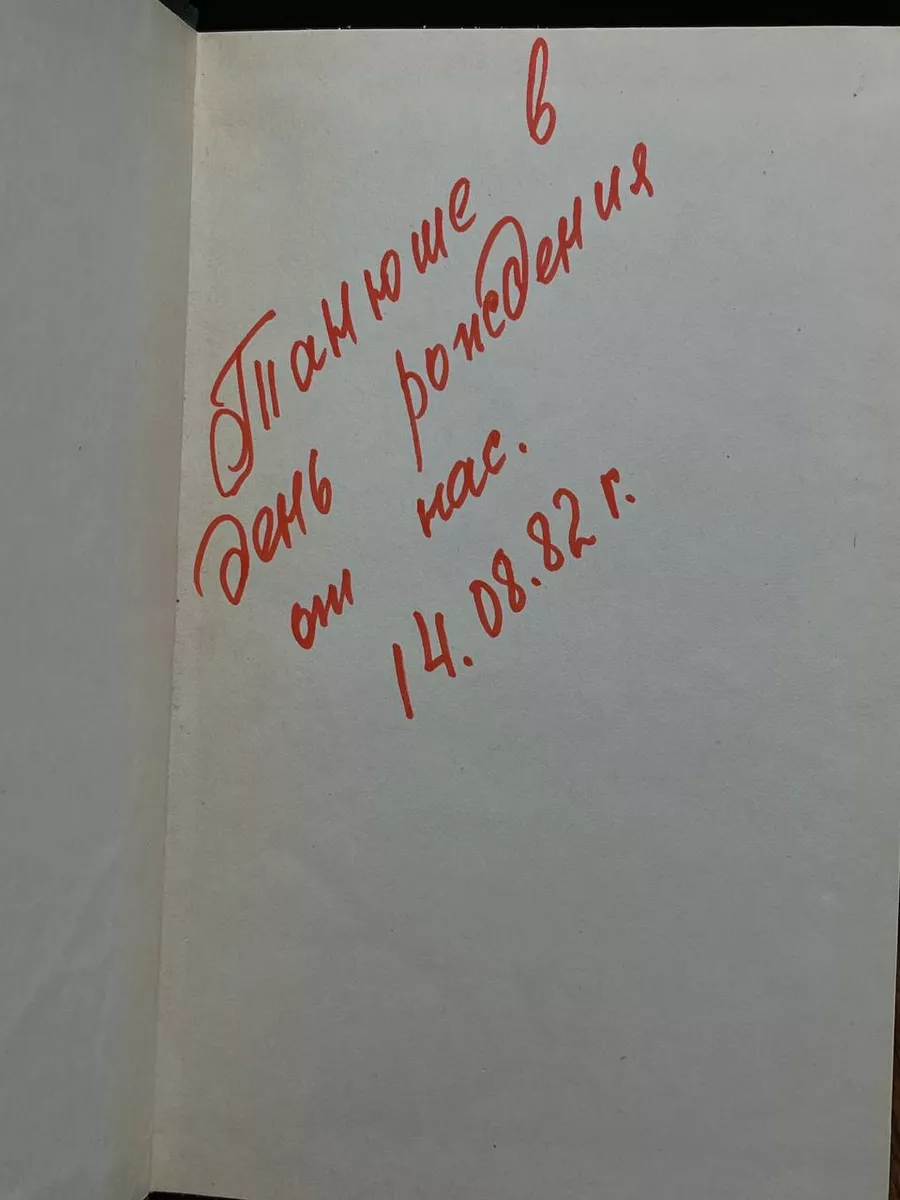 Танюше в
день рождения
от нас.
14.08.82 г.